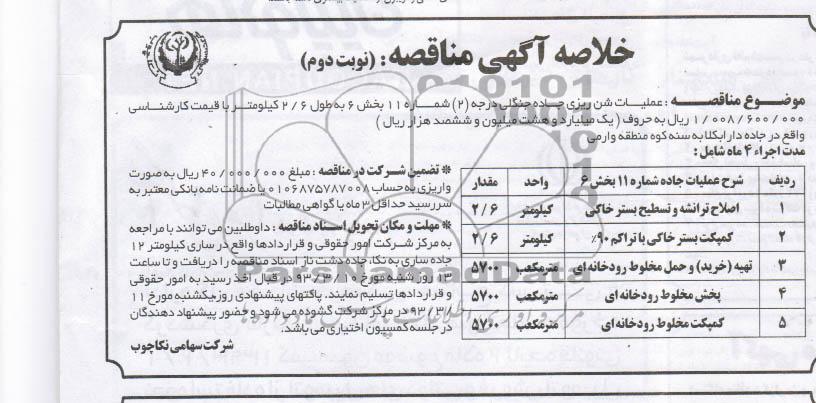 خلاصه آگهی مناقصه : (نوبت دوم)
موضوع مناقصه : عملیات شن ریزی جاده جنگلی درجه (۲) شماره ۱۱ بخش ۶ به طول ۲/۶ کیلومتر با قیمت کارشناسی
۱/۰۰۸/۶۰۰/۰۰۰ ریال به حروف ( یک میلیارد و هشت میلیون و ششصد هزار ریال )
واقع در جاده دارابکلا به سنه کوه منطقه وارمی
مدت اجراء ۴ ماه شامل :
ردیف شرح عملیات جاده شماره ۱۱ بخش ۶ واحد مقدار
۱ اصلاح ترانشه و تسطیح بستر خاکی کیلومتر ۲/۶
۲ کمپکت بستر خاکی با تراکم ۹۰٪ کیلومتر ۲/۶
۳ تهیه (خرید) و حمل مخلوط رودخانه ای مترمکعب ۵۷۰۰
۴ پخش مخلوط رودخانه ای مترمکعب ۵۷۰۰
۵ کمپکت مخلوط رودخانه ای مترمکعب ۵۷۰۰
* تضمین شرکت در مناقصه : مبلغ ۴۰/۰۰۰/۰۰۰ ریال به صورت
واریزی به حساب ۰۱۰۶۸۷۵۷۸۷۰۰۸ یا ضمانت نامه بانکی معتبر به
سررسید حداقل ۳ ماه یا گواهی مطالبات
* مهلت و مکان تحویل اسناد مناقصه : داوطلبین می توانند با مراجعه
به مرکز شرکت امور حقوقی و قراردادها واقع در ساری کیلومتر ۱۲
جاده ساری به نکا، جاده دشت ناز اسناد مناقصه را دریافت و تا ساعت
۱۳ روز شنبه مورخ ۹۳/۳/۱۰ در قبال اخذ رسید به امور حقوقی
و قراردادها تسلیم نمایند. پاکتهای پیشنهادی روز یکشنبه مورخ ۱۱
/۹۳/۳ در مرکز شرکت گشوده می شود و حضور پیشنهاد دهندگان
در جلسه کمیسیون اختیاری می باشد.
شرکت سهامی نکاچوب
ParsNamadData